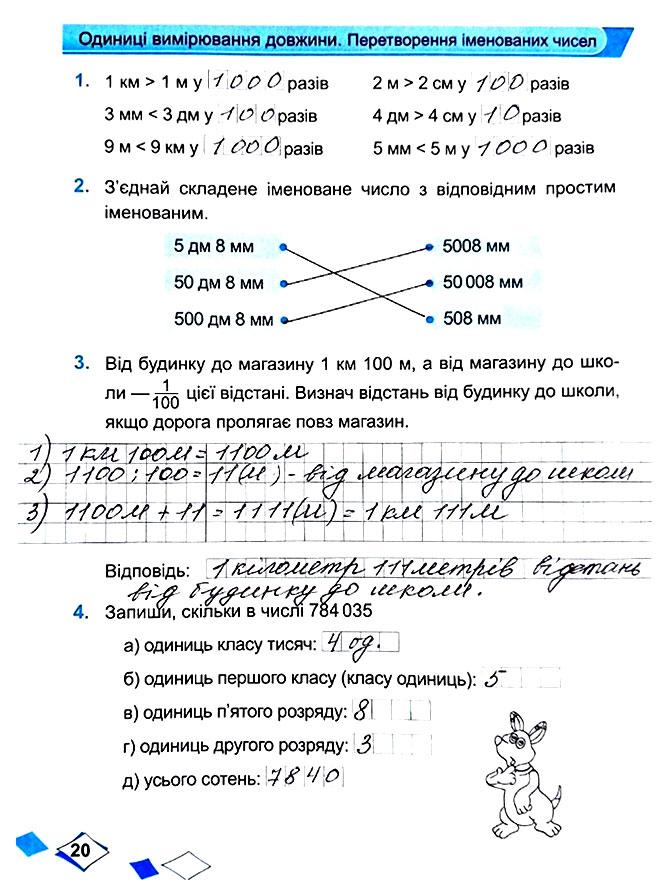 Одиниці вимірювання довжини. Перетворення іменованих чисел
1. 1 км > 1 м у 1000 разів 2 м > 2 см у 100 разів
3 мм < 3 дм у 100 разів 4 дм > 4 см у 10 разів
9 м < 9 км у 1000 разів 5 мм < 5 м у 1000 разів
2. З'єднай складене іменоване число з відповідним простим
іменованим.
5 дм 8 мм 5008 мм
50 дм 8 мм 50 008 мм
500 дм 8 мм 508 мм
3. Від будинку до магазину 1 км 100 м, а від магазину до шко-
ли — 1/100 цієї відстані. Визнач відстань від будинку до школи,
якщо дорога пролягає повз магазин.
1) 1 км 100м = 1100м
2) 1100 : 100 = 11(м) - від магазину до школи
3) 1100м + 11 = 1111(м) = 1 км 111м
Відповідь: 1 кілометр 111 метрів відстань
від будинку до школи.
4. Запиши, скільки в числі 784 035
а) одиниць класу тисяч: 4 од.
б) одиниць першого класу (класу одиниць): 5
в) одиниць п'ятого розряду: 8
г) одиниць другого розряду: 3
д) усього сотень: 7840
20